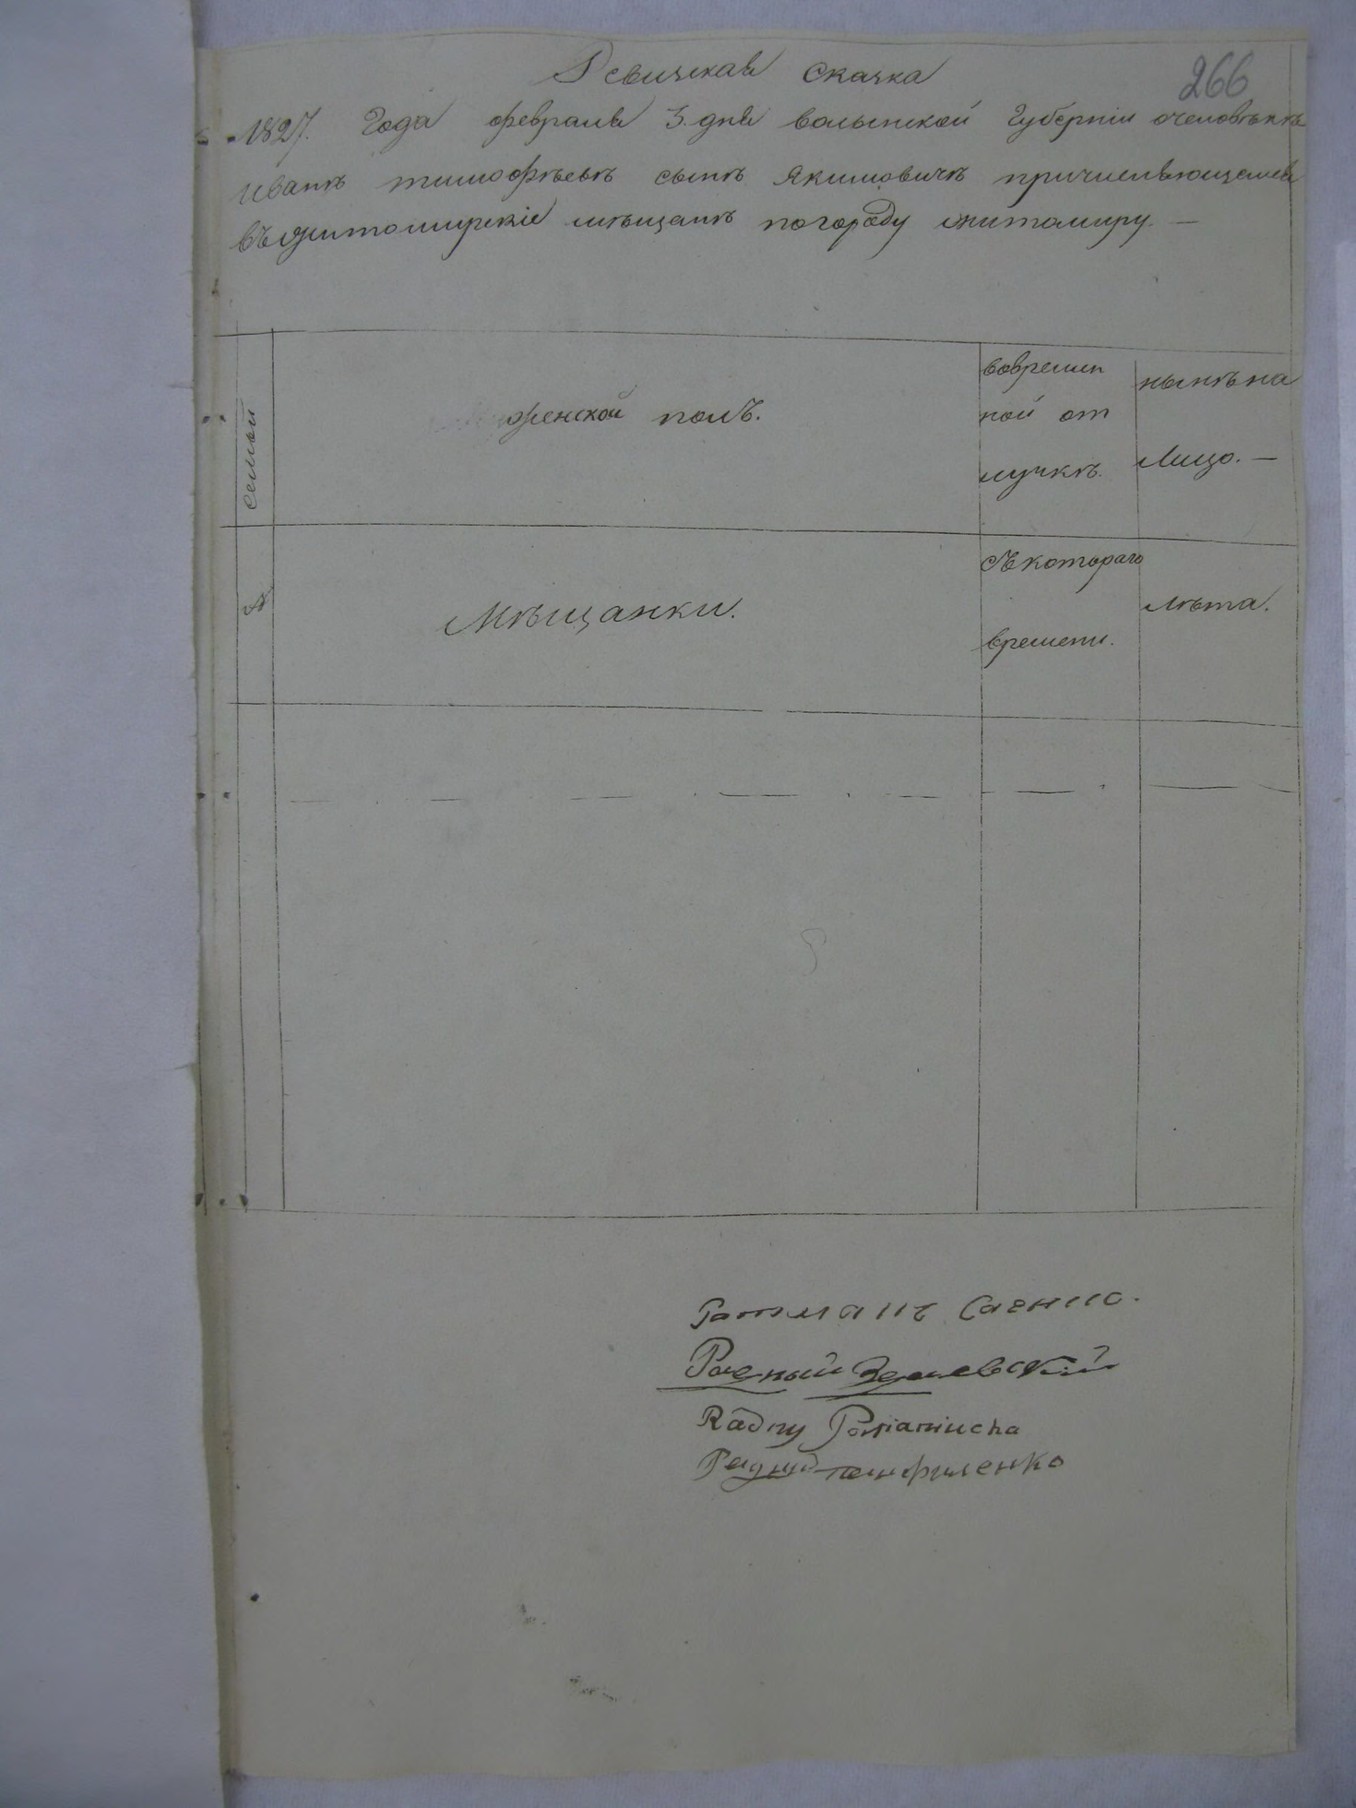 Ревизская скачка
266
1827. Года февраля 3. дня волынской Губерніи очеловѣкѣ
Иванѣ тимофѣевѣ сынѣ Якимовичѣ причисляющемся
въ житомирскіе мѣщанѣ погороду житомиру. —
Семьи
женской полъ.
вовремен
ной от
лучкѣ.
нынѣ на
Лицо. —
№
Мѣщанки.
Съ котораго
времени.
Лѣта.
Ратманъ Саенко.
Радный
Radny
Радный Панфиленко